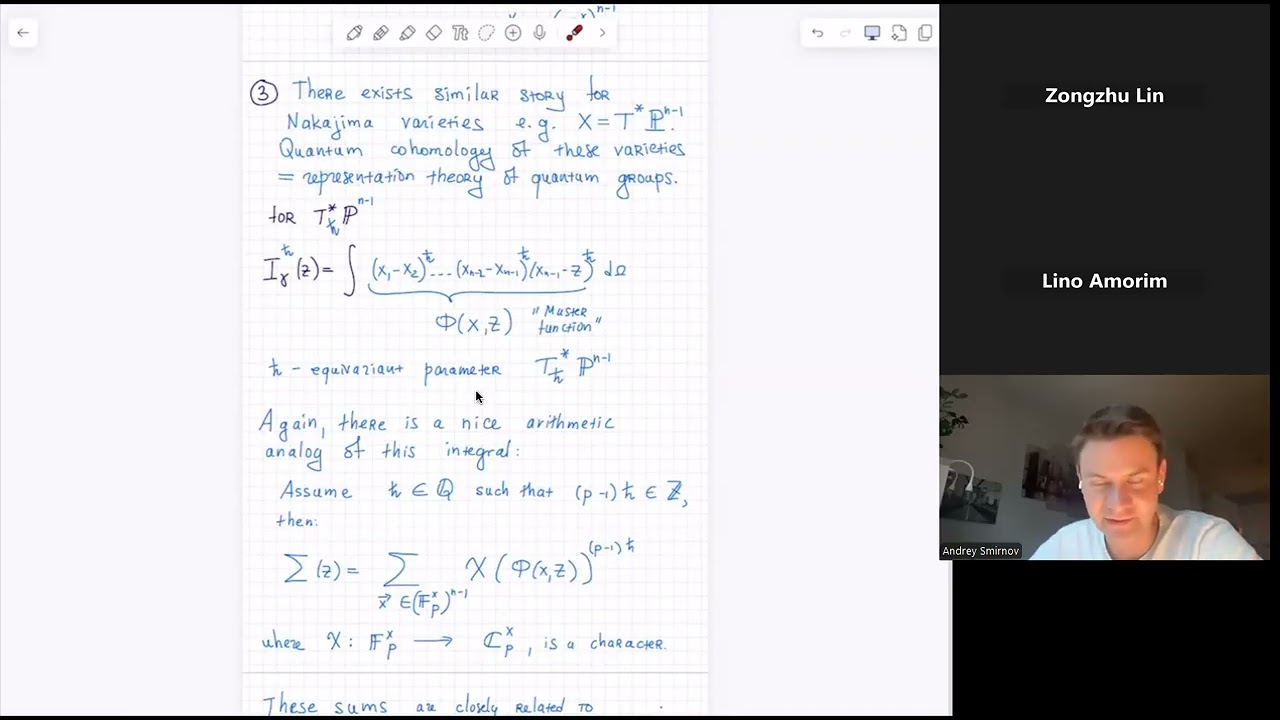 ③ There exists similar story for
Nakajima varieties e.g. X = T^* ℙ^{n-1}.
Quantum cohomology of these varieties
= representation theory of quantum groups.
for T^*_ħ ℙ^{n-1}
I^ħ_γ(z) = ∫ (x_1-x_2)^ħ ... (x_{n-2}-x_{n-1})^ħ (x_{n-1}-z)^ħ dΩ
Φ(x,z) "Master function"
ħ - equivariant parameter T^*_ħ ℙ^{n-1}
Again, there is a nice arithmetic
analog of this integral:
Assume ħ ∈ ℚ such that (p-1)ħ ∈ ℤ,
then:
Σ(z) = Σ_{x⃗ ∈ (𝔽_p^×)^{n-1}} χ(Φ(x,z))^{(p-1)ħ}
where χ: 𝔽_p^× ⟶ ℂ_p^×, is a character.
These sums are closely related to
Zongzhu Lin
Lino Amorim
Andrey Smirnov